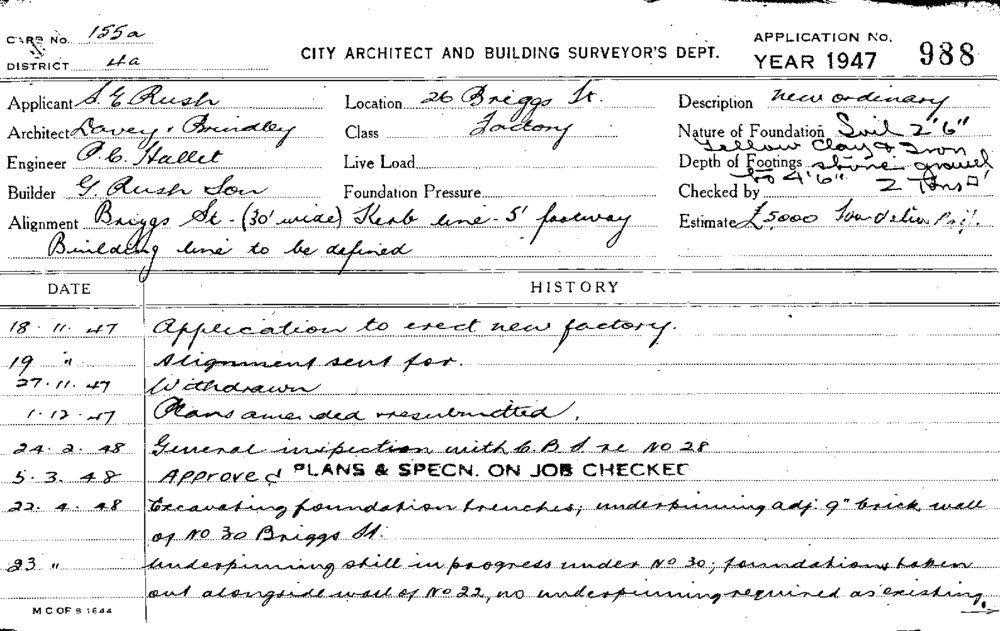 CARD NO. 155a
DISTRICT 4a
CITY ARCHITECT AND BUILDING SURVEYOR'S DEPT.
APPLICATION NO. 988
YEAR 1947
Applicant S. E. Rush
Location 26 Briggs St.
Description New ordinary
Architect Davey & Brindley
Class Factory
Nature of Foundation Soil 2'6"
Yellow Clay & Iron
Engineer P. C. Hallet
Live Load
Depth of Footings stone gravel
to 4'6" 2 Tons □'
Builder G. Rush Son
Foundation Pressure
Checked by
Alignment Briggs St - (30' wide) Kerb line - 5' footway
Estimate £5000
Building line to be defined
DATE HISTORY
18. 11. 47 Application to erect new factory.
19 " Alignment sent for.
27. 11. 47 Withdrawn
1. 12. 47 Plans amended & resubmitted.
24. 2. 48 General inspection with C.B.S re No 28
5. 3. 48 Approved PLANS & SPECN. ON JOB CHECKED
22. 4. 48 Excavating foundation trenches; underpinning adj. 9" brick wall
of No 30 Briggs St.
23 " Underpinning still in progress under No 30; foundations taken
out alongside wall of No 22, no underpinning required as existing.
M C OF S 1644